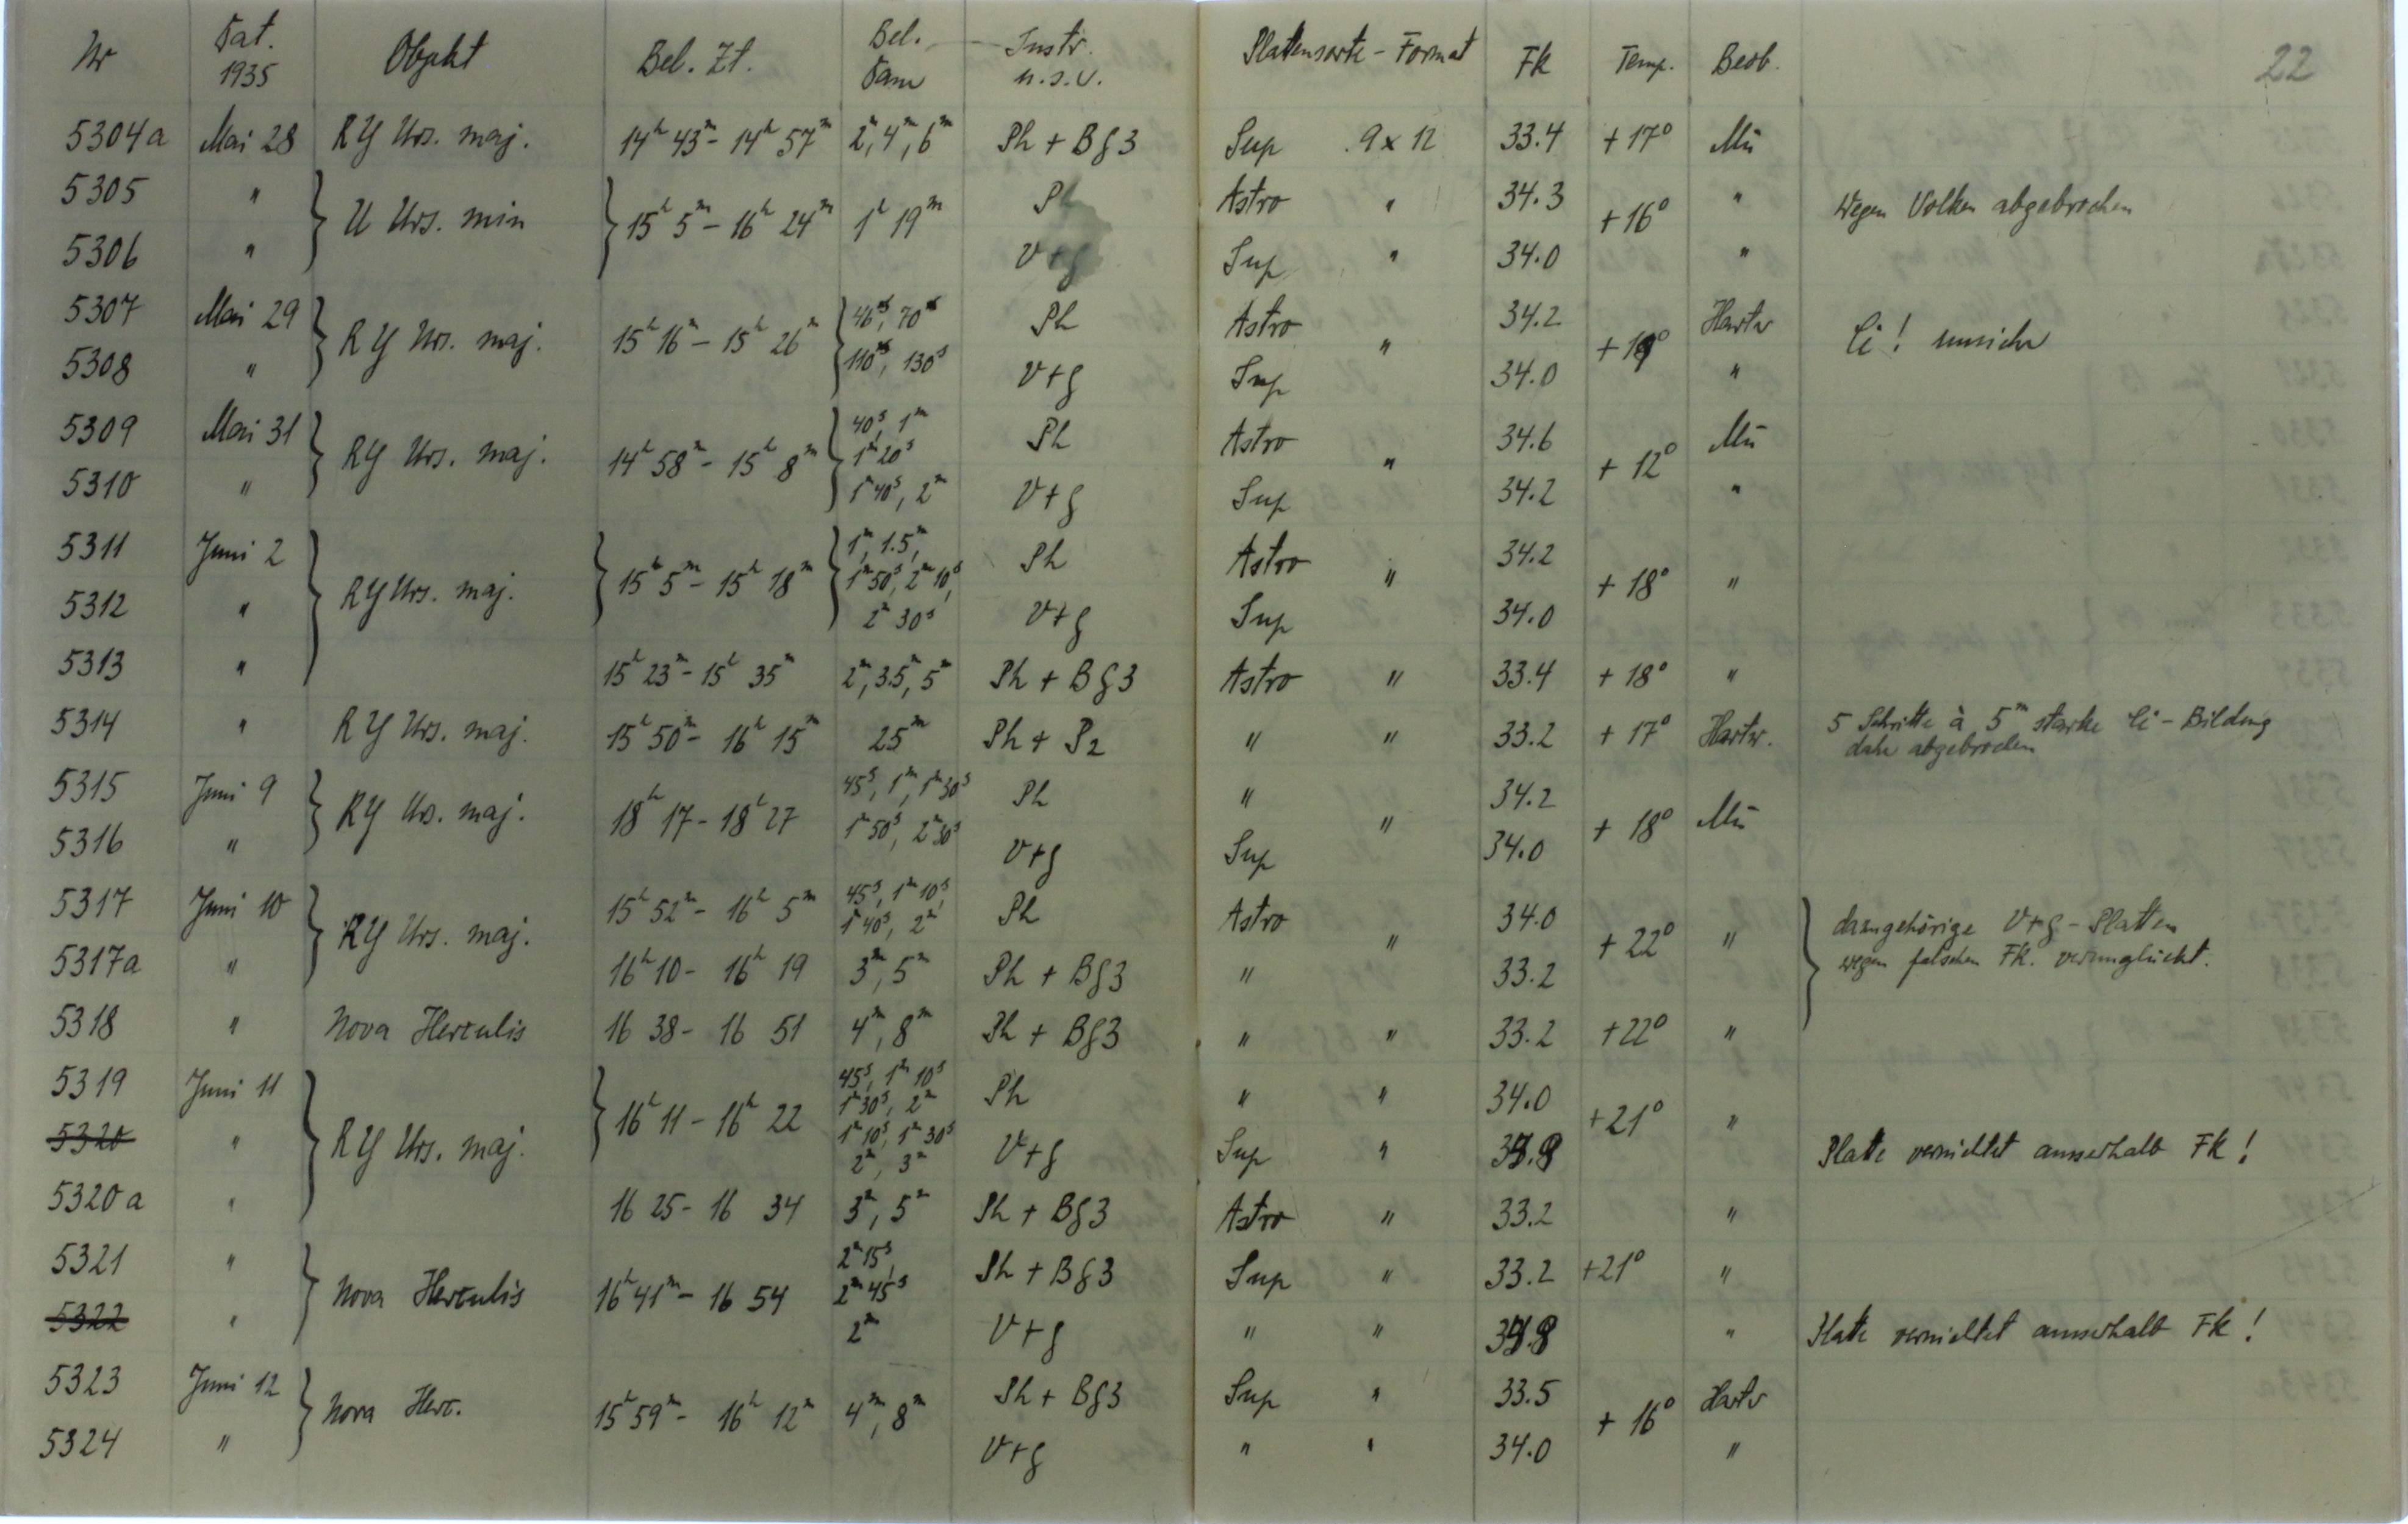 Nr Dat. 1935 Objekt Bel. Zt. Bel. Dau Instr. u.s.v. Plattensorte - Format Fk Temp. Beob. 22
5304a Mai 28 RY Urs. maj. 14h 43m - 14h 57m 2m, 4m, 6m Ph + Bg3 Sup 9 x 12 33.4 + 17° Mü
5305 " } U Urs. min } 15h 5m - 16h 24m 1h 19m Ph Astro " 34.3 + 16° " Wegen Wolken abgebrochen
5306 " V+g Sup " 34.0 "
5307 Mai 29 } RY Urs. maj. 15h 16m - 15h 26m } 46s, 70s Ph Astro " 34.2 Hartw Ci! unsicher
5308 " 110s, 130s V+g Sup 34.0 "
5309 Mai 31 } RY Urs. maj. 14h 58m - 15h 8m } 40s, 1m 1m 20s Ph Astro " 34.6 + 12° Mü
5310 " 1m 40s, 2m V+g Sup 34.2 "
5311 Juni 2 } RY Urs. maj. } 15h 5m - 15h 18m } 1m, 1.5m, 1m 50s, 2m 10s, Ph Astro " 34.2 + 18° "
5312 " 2m 30s V+g Sup 34.0
5313 " 15h 23m - 15h 35m 2m, 3.5m, 5m Ph + Bg3 Astro " 33.4 + 18° "
5314 " RY Urs. maj. 15h 50m - 16h 15m 25m Ph + P2 " " 33.2 + 17° Hartw. 5 Schritte à 5m starke Ci - Bildung
daher abgebrochen
5315 Juni 9 } RY Urs. maj. 18h 17 - 18h 27 45s, 1m, 1m 30s Ph " " 34.2 + 18° Mü
5316 " 1m 50s, 2m 30s V+g Sup 34.0
5317 Juni 10 } RY Urs. maj. 15h 52m - 16h 5m 45s, 1m 10s, 1m 40s, 2m Ph Astro " 34.0 + 22° " } dazugehörige V+g - Platten
5317a " 16h 10 - 16h 19 3m, 5m Ph + Bg3 " 33.2 wegen falschen Fk. verunglückt.
5318 " Nova Herculis 16 38 - 16 51 4m, 8m Ph + Bg3 " " 33.2 +22° "
5319 Juni 11 } RY Urs. maj. } 16h 11 - 16h 22 45s, 1m 10s 1m 30s, 2m Ph " " 34.0 +21° "
5320 " 1m 10s, 1m 30s 2m, 3m V+g Sup " Platte vernichtet ausserhalb Fk!
5320a " 16 25 - 16 34 3m, 5m Ph + Bg3 Astro " 33.2 "
5321 " } Nova Herculis 16h 41m - 16 54 2m 15s, 2m 45s Ph + Bg3 Sup " 33.2 +21° "
5322 " 2m V+g " " " Platte vernichtet ausserhalb Fk!
5323 Juni 12 } Nova Herc. 15h 59m - 16h 12m 4m, 8m Ph + Bg3 Sup " 33.5 + 16° Hartw
5324 " V+g " " 34.0 "